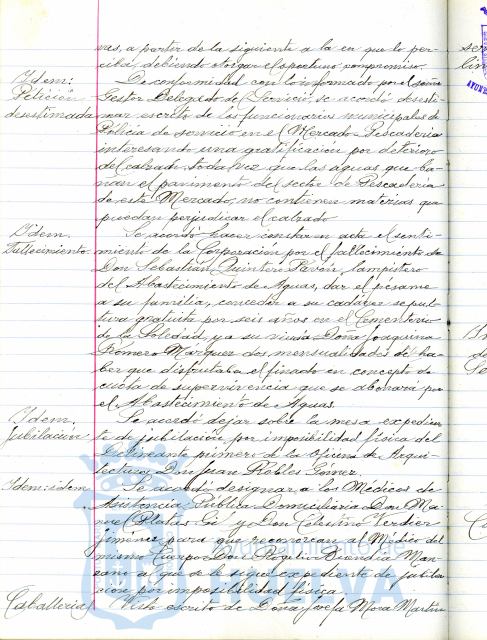 vas, a partir de la siguiente a la en que lo per-
cibá, debiendo otorgar el oportuno compromiso.
Idem:
Petición
desestimada
De conformidad con lo informado por el señor
Gestor Delegado de Servicio, se acordó desesti-
mar escrito de los funcionarios municipales de
Policía de servicio en el Mercado Pescadería
interesando una gratificación por deterioro
de calzado, toda vez que las aguas que ba-
ñan el pavimento del sector de Pescadería
de este Mercado, no contienen materias que
puedan perjudicar el calzado
Idem.
Fallecimiento
Se acordó hacer constar en acta el senti-
miento de la Corporación por el fallecimiento de
Don Sebastian Quintero Pavón, lampistero
del Abastecimiento de Aguas, dar el pésame
a su familia, conceder a su cadáver sepul-
tura gratuita por seis años en el Cementerio
de la Soledad, y a su viuda Doña Joaquina
Romero Marquez dos mensualidades del ha-
ber que disfrutaba el finado en concepto de
cuota de supervivencia que se abonará por
el Abastecimiento de Aguas.
Idem.
Jubilación
Se acordó dejar sobre la mesa expedien-
te de jubilación por imposibilidad física del
Delineante primero de la Oficina de Arqui-
tectura, Don Juan Robles Gómez.
Idem: idem
Se acordó designar a los Médicos de
Asistencia Pública Domiciliaria Don Ma-
nuel Platas Gil y Don Celestino Verdier
Jiménez para que reconozcan al Médico del
mismo Cuerpo Don Rogelio Buendia Man-
zano a que se le sigue expediente de jubila-
ción por imposibilidad física.
Caballerías
Visto escrito de Doña Josefa Mora Martín
Ayuntamiento de
HUELVA